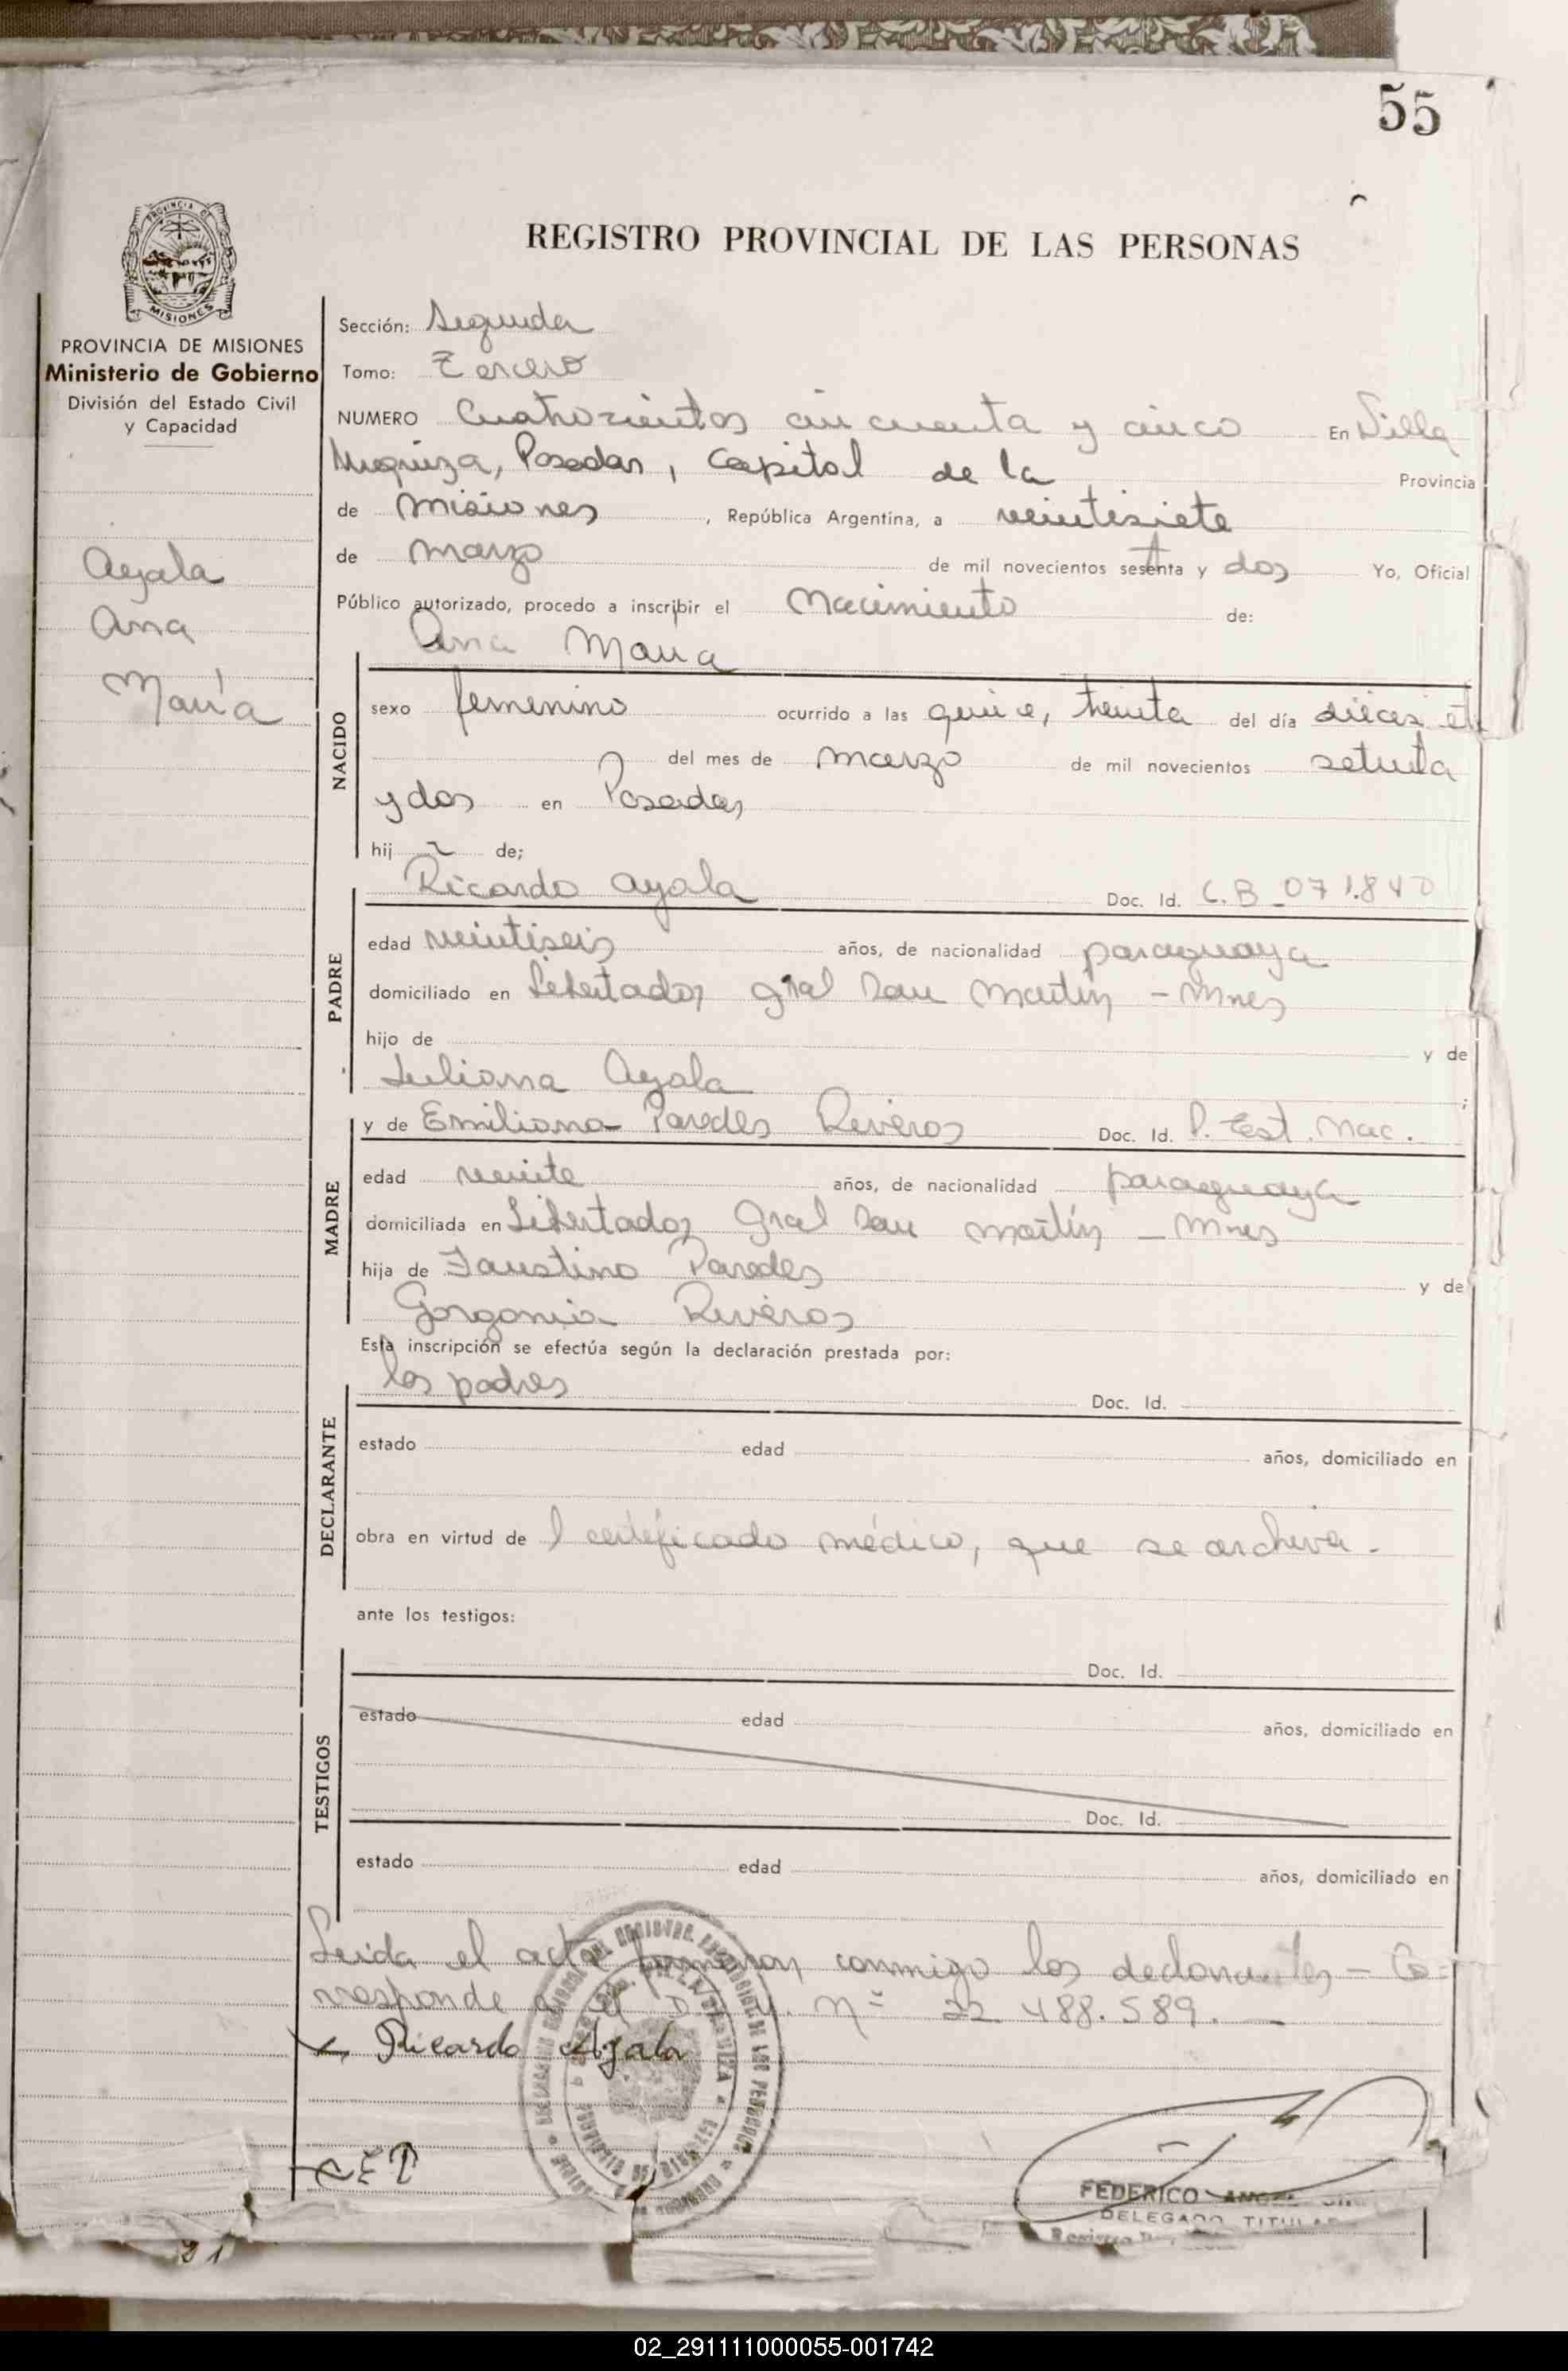 55
PROVINCIA DE
MISIONES
REGISTRO PROVINCIAL DE LAS PERSONAS
PROVINCIA DE MISIONES
Ministerio de Gobierno
División del Estado Civil
y Capacidad
Ayala
Ana
María
Sección: Segunda
Tomo: Tercero
NUMERO Cuatrocientos cincuenta y cinco En Villa
Urquiza, Posadas, Capital de la Provincia
de Misiones, República Argentina, a veintisiete
de marzo de mil novecientos setenta y dos Yo, Oficial
Público autorizado, procedo a inscribir el Nacimiento de:
Ana Maria
NACIDO
sexo femenino ocurrido a las quince, treinta del día
del mes de marzo de mil novecientos setenta
y dos en Posadas
hij de;
Ricardo Ayala Doc. Id. C.B_071.840
PADRE
edad veintiseis años, de nacionalidad paraguaya
domiciliado en Libertador gral San Martín - Mnes
hijo de y de
Juliana Ayala ;
y de Emiliana Paredes Riveros Doc. Id. P. Est. Nac.
MADRE
edad veinte años, de nacionalidad paraguaya
domiciliada en Libertador Gral San Martín - Mnes
hija de Faustino Paredes y de
Gorgonia Riveros
Esta inscripción se efectúa según la declaración prestada por:
los padres Doc. Id.
DECLARANTE
estado edad años, domiciliado en
obra en virtud de l certificado médico, que se archiva.
ante los testigos:
Doc. Id.
TESTIGOS
estado edad años, domiciliado en
Doc. Id.
estado edad años, domiciliado en
Leida el acta firmaron conmigo los declarantes - Co-
rresponde a el D. N. Nº 22 488.589.
Ricardo Ayala
FEDERICO
DELEGADO TITULAR
02_291111000055-001742